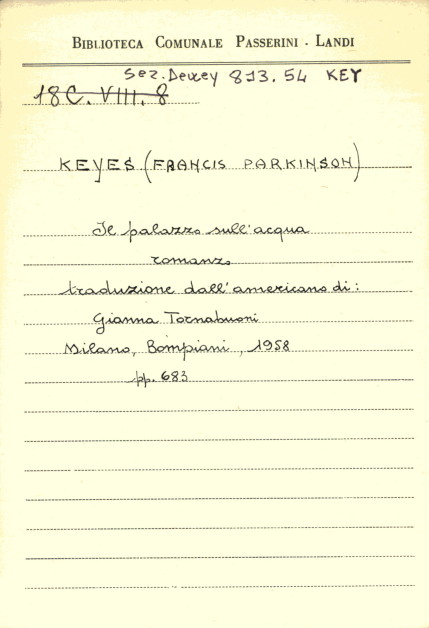 BIBLIOTECA COMUNALE PASSERINI - LANDI
Sez. Dewey 813.54 KEY
18 C. VIII. 8
KEYES (FRANCIS PARKINSON)
Il palazzo sull'acqua
romanzo
traduzione dall'americano di:
Gianna Tornabuoni
Milano, Bompiani, 1958
pp. 683